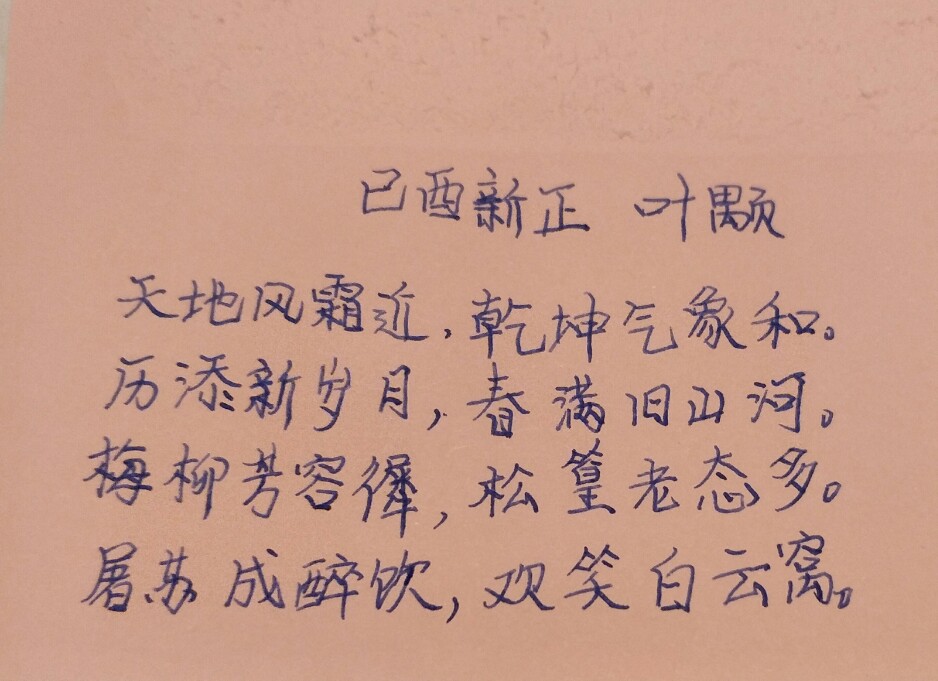 已酉新正 叶颙
天地风霜近，乾坤气象和。
历添新岁月，春满旧山河。
梅柳芳容徲，松篁老态多。
屠苏成醉饮，欢笑白云窝。